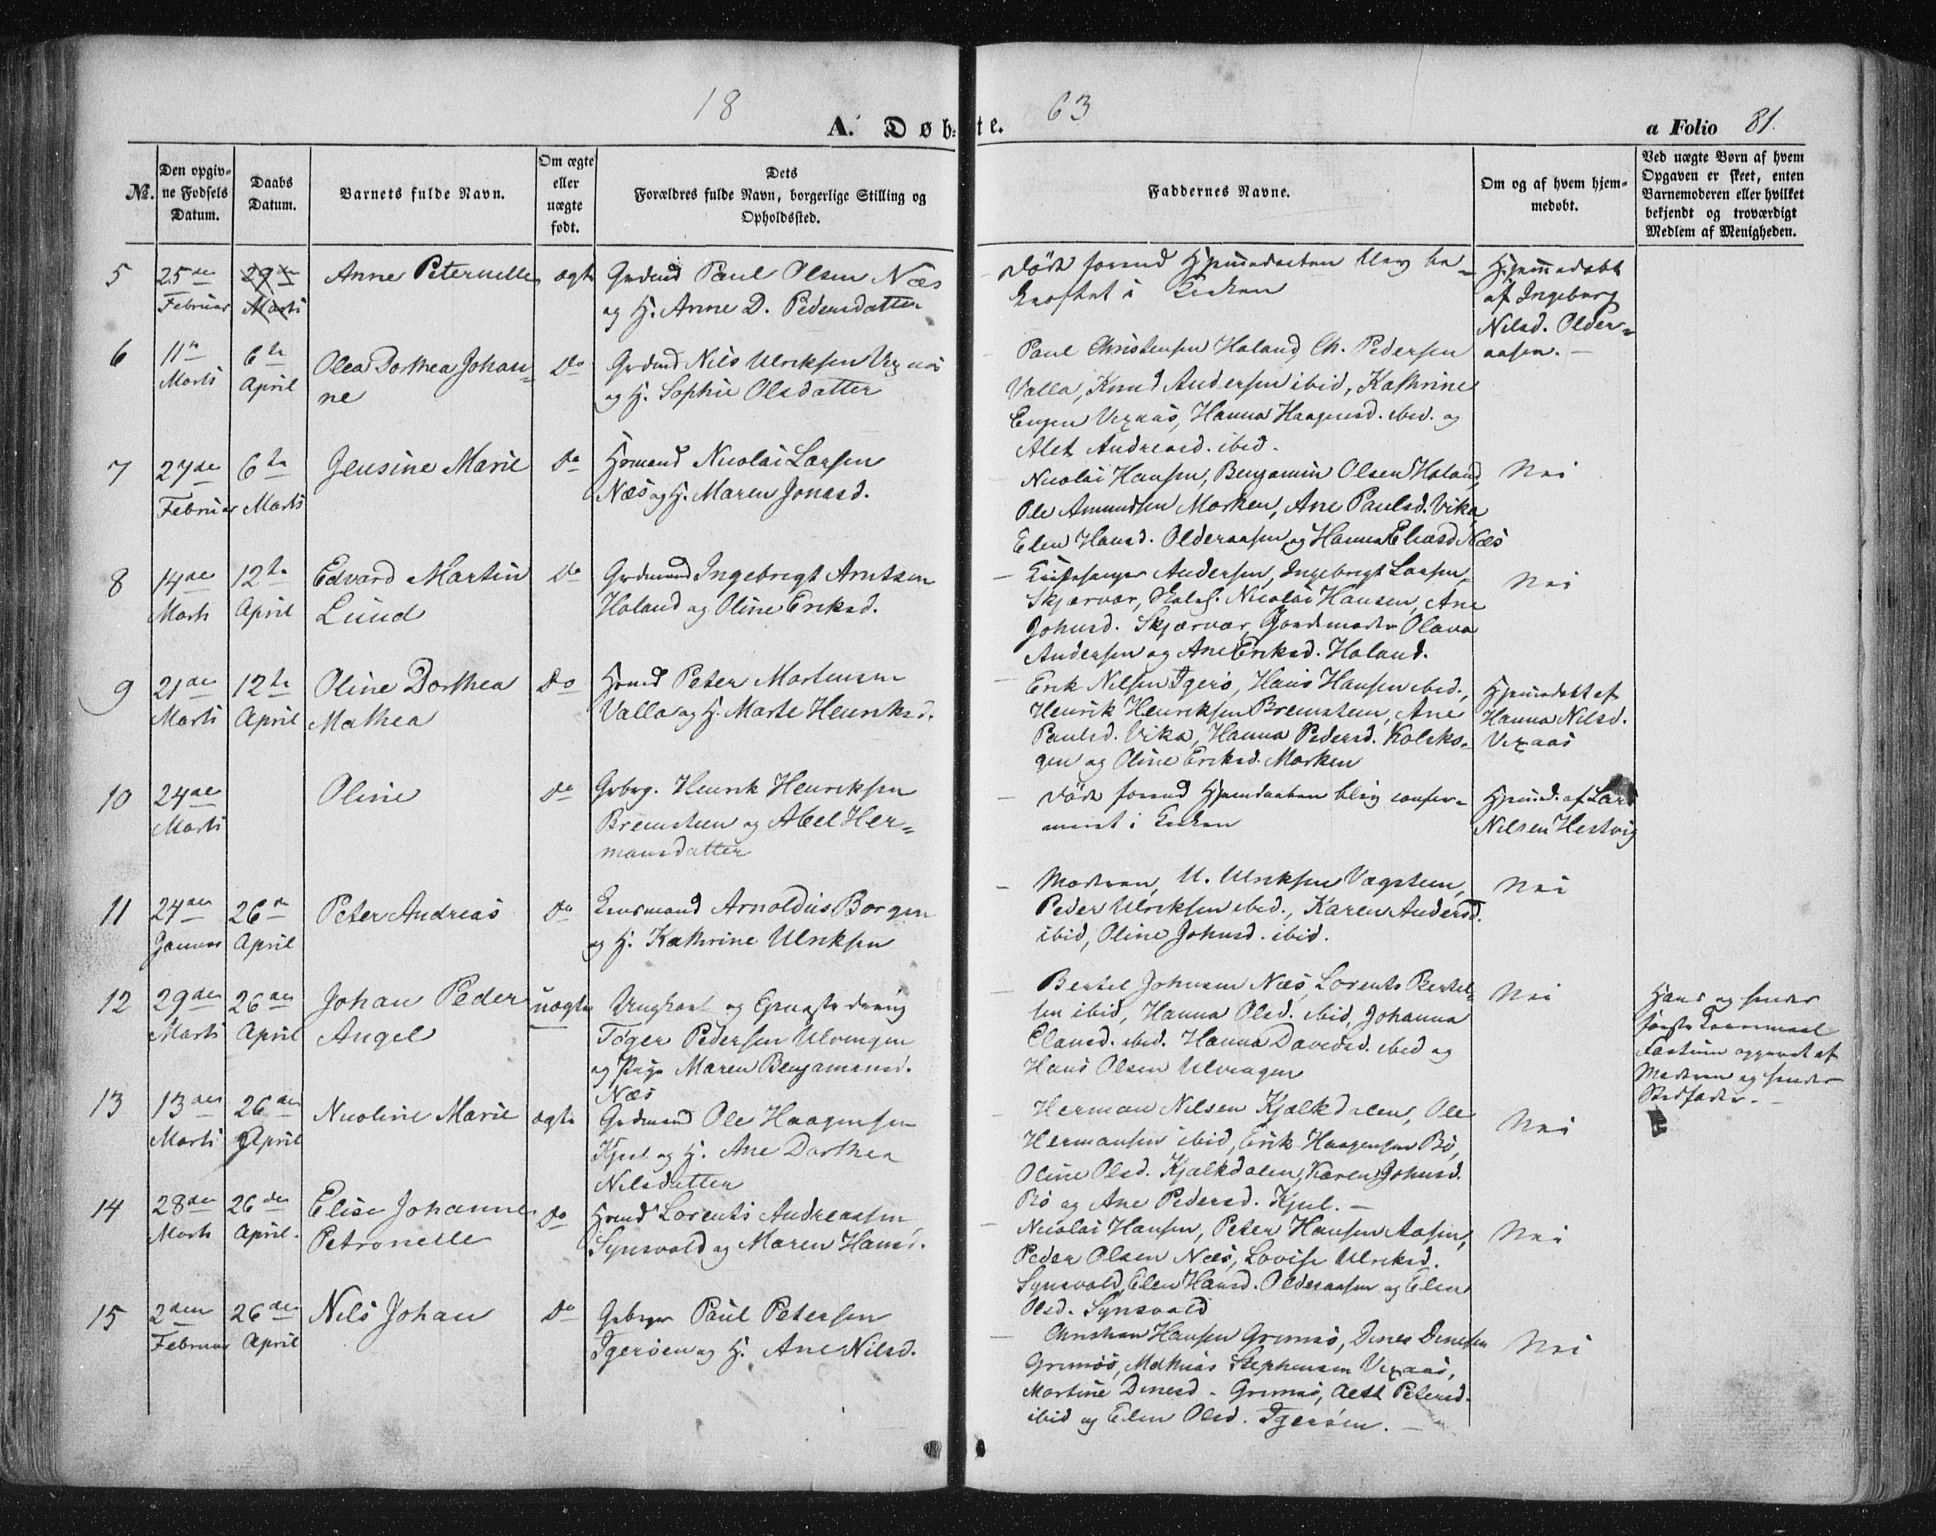 18 63
A. Døbte.
a Folio 81.
№.
Den opgivne Fødsels Datum.
Daabs Datum.
Barnets fulde Navn.
Om ægte eller uægte født.
Dets Forældres fulde Navn, borgerlige Stilling og Opholdssted.
Faddernes Navne.
Om og af hvem hjemmedøbt.
Ved uægte Børn af hvem Opgaven er skeet, enten Barnemoderen eller hvilket bekjendt og troværdigt Medlem af Menigheden.
5 25de Februar 29de Marts Anne Peternelle ægte
Grdmd Paul Olsen Næs
og H. Anne D. Pedersdatter
Døde forend Hjemmedaaben blev be-
kræftet i Kirken
Hjemmedøbt
af Ingeborg
Nilsd. Older-
aasen.
6 11te Marts 6te April Olea Dorthea Johan-
ne Do
Grdmd Nils Ulriksen Vexaas
og H. Sophie Olsdatter
Paul Christensen Høland, Ch. Pedersen
Valla, Knud Andersen ibid, Kathrine
Vexaas, Hanna Haagensd. ibid. og
Alet Andreasd. ibid.
7 27de Februar 6te Marts Jensine Marie Do
Hsmand Nicolai Larsen
Næs og H. Maren Jonasd.
Nicolai Hansen, Benjamin Olsen Høland,
Ole Amundsen Morken, Ane Paulsd. Vika,
Elen Hansd. Olderaasen og Hanna Eliasd Næs
Nei
8 14de Marts 12te April Edvard Martin
Lund Do
Grdmand Ingebrigt Arntsen
Høland og Oline Eriksd.
Kirkesanger Andersen, Ingebrigt Larsen
Skjærvær, Nicolai Hansen, Ane
Johnsd. Skjærvær, Jordmoder Olava
Andersen og Ane Eriksd. Høland.
Nei
9 21de Marts 12te April Oline Dorthea
Mathea Do
Hsmd Peter Mortensen
Valla og H. Marte Henriksd.
Erik Nilsen Tgerö, Hans Hansen ibid.,
Henrik Henriksen Bremsteen, Ane
Paulsd. Vika, Hanna Pedersd. Kolsko-
gen og Oline Eriksd. Morken
Hjemmedøbt af
Hanna Nilsd.
Vexaas
10 24de Marts Oline Do
Henrik Henriksen
Bremsteen og Abel Her-
mansdatter
Døde forend Hjemdaaben blev confir-
meret i Kirken
Hjemmd. af Lars
Nilsen Hestvig
11 24de Januar 26de April Peter Andreas Do
Lensmand Arnoldus Borgen
og H. Kathrine Ulriksen
Moderen, U. Ulriksen Vægsteen,
Peder Ulriksen ibid., Karen Andersd.
ibid, Oline Johnsd. ibid.
Nei
12 29de Marts 26de April Johan Peder
Angel uægte
Ungkarl og
Töger Pedersen Ulvingen
og Pige Maren Benjaminsd.
Næs
Bertel Johnsen Næs, Lorents Bertel-
sen ibid, Hanna Olsd. ibid, Johanna
Elausd. ibid. Hanna Davidsd. ibid og
Hans Olsen Ulvingen
Nei
Hans og hendes
første Leiermaal
Factum opgivet af
Moderen og hendes
Stedfader.
13 13de Marts 26de April Nicoline Marie ægte
Grdmand Ole Haagensen
Kjul og H. Ane Dorthea
Nilsdatter
Herman Nilsen Kjælkdalen, Ole
Hermansen ibid, Erik Haagensen Bö,
Oline Olsd. Kjælkdalen, Karen Johnsd.
Bö og Ane Pedersd. Kjul.
Nei
14 28de Marts 26de April. Elise Johanne
Petronelle Do
Hsmd Lorents Andreassen
Synsvold og Maren Hansd.
Nicolai Hansen, Peter Hansen Aasen,
Peder Olsen Næs, Lovise Ulriksd.
Synsvold, Elen Hansd. Olderaasen og Elen
Olsd. Synsvold
Nei
15 2den Februar 26de April Nils Johan Do
Paul Petersen
Tgeröen og H. Ane Nilsd.
Christian Hansen Grimsö, Dines Dinesen
Grimsö, Mathias Stephensen Vexaas,
Martine Dinesd. Grimsö, Peternd.
ibid og Elen Olsd. Tgeröen.
Nei